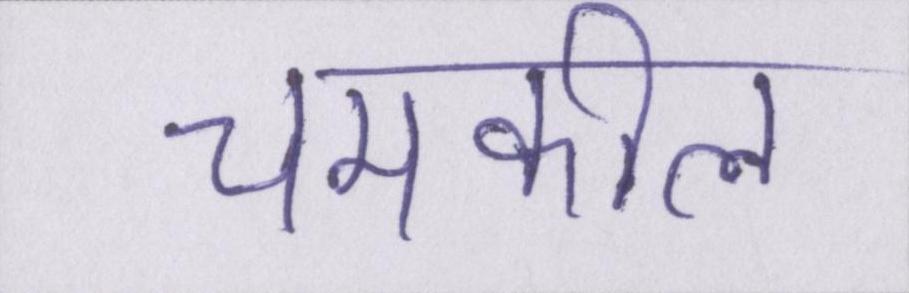 चमकील